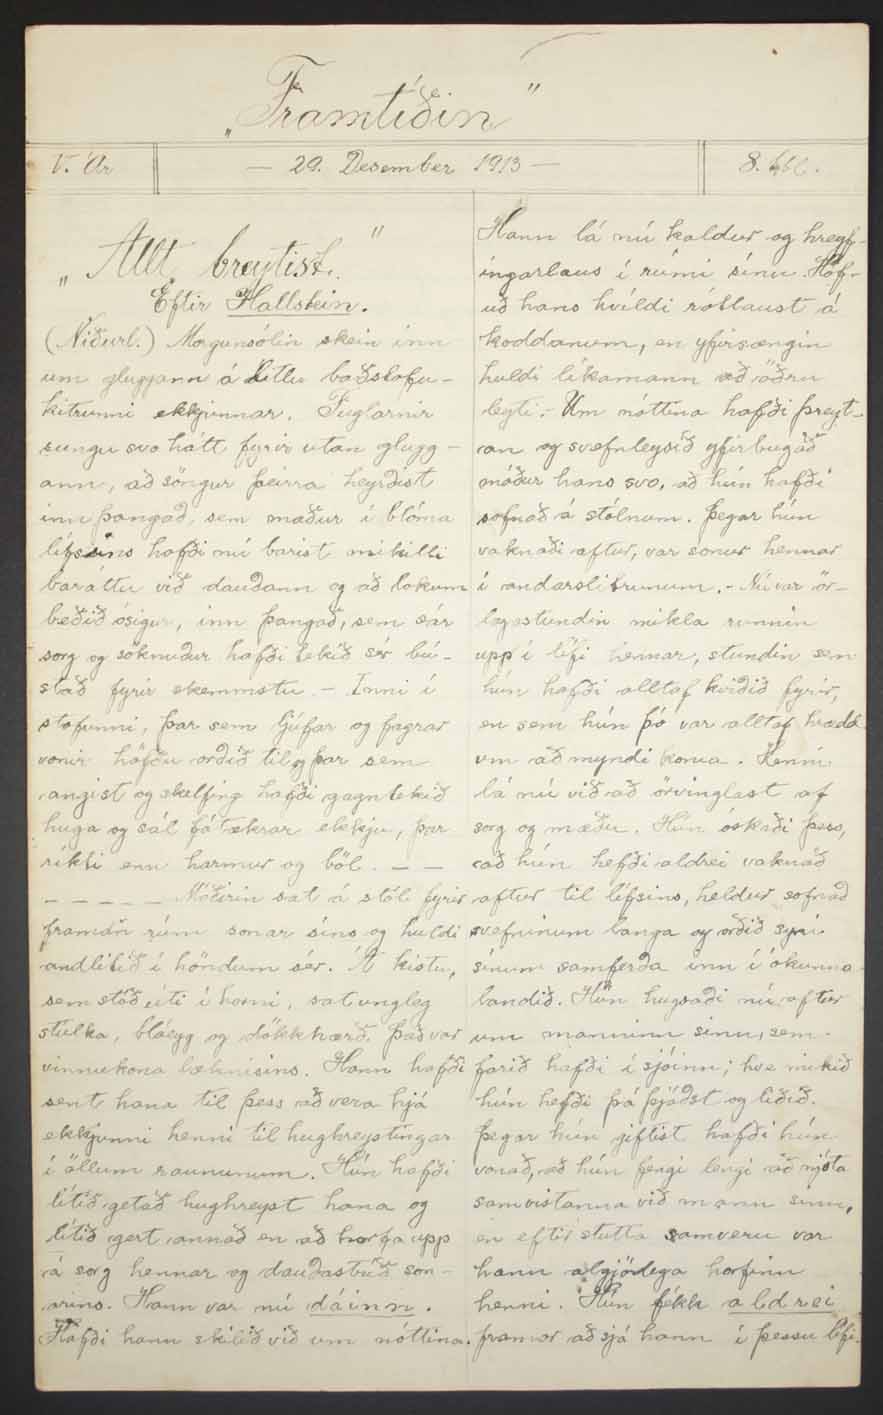 „Framtíðin"
V. Ár
— 29. Desember 1913 —
8. tbl.
„Allt breytist."
Eftir Hallstein.
(Niðurl.) Morgunsólin skein inn
um gluggann á litlu baðstofu-
kitrunni ekkjunnar. Fuglarnir
sungu svo hátt fyrir utan glugg-
ann, að söngur þeirra heyrðist
inn þangað, sem maður í blóma
lífsins hafði nú barist mikilli
baráttu við dauðann og að lokum
beðið ósigur, inn þangað, sem sár
sorg og söknuður hafði tekið sér bú-
stað fyrir skemmstu. — Inni í
stofunni, þar sem ljúfar og fagrar
vonir höfðu orðið til og þar sem
angist og skelfing hafði gagntekið
huga og sál fátækrar ekkju, þar
ríkti enn harmur og böl. — —
— — — — — Móðirin sat á stól fyrir
framan rúm sonar síns og huldi
andlitið í höndum sér. Á kistu,
sem stóð úti í horni, sat ungleg
stúlka, bláeyg og dökkhærð. Það var
vinnukona læknisins. Hann hafði
sent hana til þess að vera hjá
ekkjunni henni til hughreystingar
í öllum raununum. Hún hafði
lítið getað hughreyst hana og
lítið gert annað en að horfa upp
á sorg hennar og dauðastríð son-
arins. Hann var nú dáinn.
Hafði hann skilið við um nóttina.
Hann lá nú kaldur og hreyf-
ingarlaus í rúmi sínu. Höf-
uð hans hvíldi rótlaust á
koddanum, en yfirsængin
huldi líkamann að öðru
leyti. – Um nóttina hafði þreyt-
an og svefnleysið yfirbugað
móður hans svo, að hún hafði
sofnað á stólnum. Þegar hún
vaknaði aftur, var sonur hennar
í andarslitrunum. – Nú var ör-
lagastundin mikla runnin
upp í lífi hennar, stundin sem
hún hafði alltaf kviðið fyrir,
en sem hún þó var alltaf hrædd
um að myndi koma. Henni
lá nú við að örvinglast af
sorg og mæðu. Hún óskaði þess,
að hún hefði aldrei vaknað
aftur til lífsins, heldur sofnað
svefninum langa og orðið syni
sínum samferða inn í ókunna
landið. Hún hugsaði nú aftur
um manninn sinn, sem
farið hafði í sjóinn; hve mikið
hún hefði þá þjáðst og liðið.
Þegar hún giftist hafði hún
vonað, að hún fengi lengi að njóta
samvistanna við mann sinn,
en eftir stutta samveru var
hann algjörlega horfinn
henni. Hún fékk aldrei
framar að sjá hann í þessu lífi.